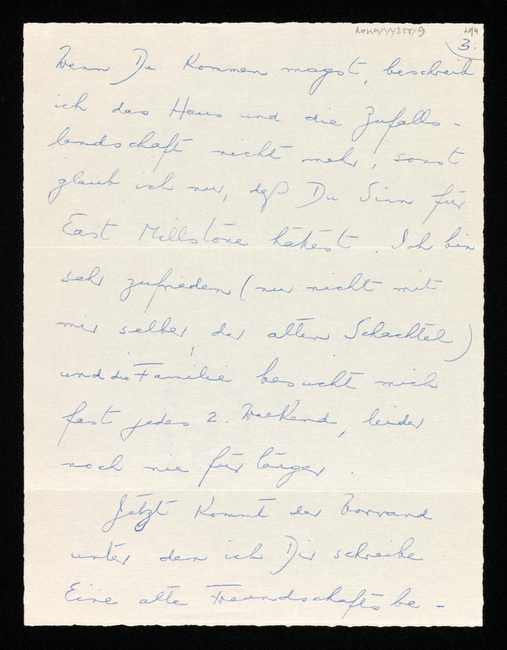 3.
Wenn Du kommen magst, beschreib
ich das Haus und die Zufalls-
landschaft nicht mehr, sonst
glaub ich nur, daß Du Sinn für
East Millstone hättest. Ich bin
sehr zufrieden (nur nicht mit
mir selber, der alten Schachtel)
und die Familie besucht mich
fast jedes 2. Weekend, leider
noch nie für länger.
Jetzt kommt der Vorwand
unter dem ich Dir schreibe
Eine alte Freundschaftsbe-